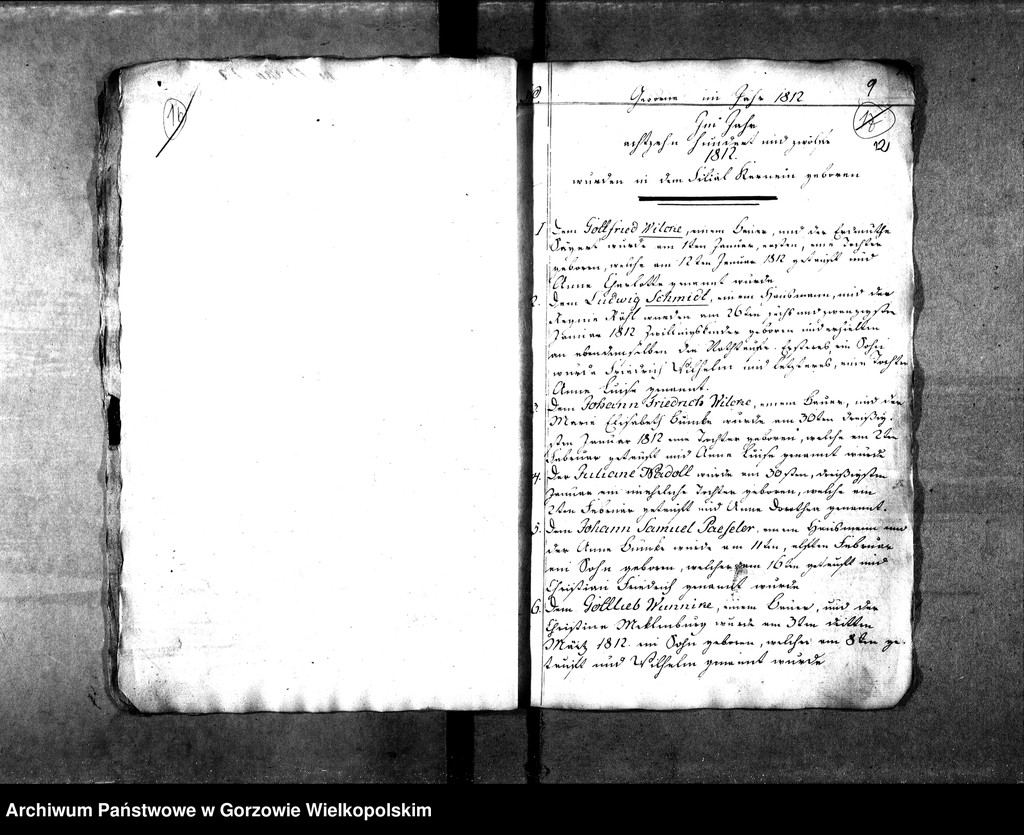 16
9
Geborne im Jahr 1812
18
12
Im Jahr
achtzehn hundert und zwölf
1812.
wurden in dem Filial Kernein geboren
1 Dem Gottfried Wilcke, einem Bauer, und der Erdmuthe
wurde am 1ten Januar, ersten, eine Tochter
geboren, welche am 12ten Januar 1812 getauft und
Anne Charlotte genannt wurde
2. Dem Ludwig Schmidt, einem Hausmann, und der
Regine wurden am 26ten sechs und zwanzigsten
Januar 1812 Zwillingskinder geboren und erhielten
an ebendemselben die Nothtaufe. Ersteres ein Sohn
wurde Friedrich Wilhelm und letzteres, eine Tochter
Anne Luise genannt.
3. Dem Johann Friedrich Wilcke, einem Bauer, und der
Marie Elisabeth Bumke wurde am 30ten dreißig-
sten Januar 1812 eine Tochter geboren, welche am 2ten
Februar getauft und Anne Luise genannt wurde
4. Der Juliane wurde am 30sten, dreißigsten
Januar eine uneheliche Tochter geboren, welche am
2ten Februar getauft und Anne Dorothea genannt.
5. Dem Johann Samuel Paeseler, einem Hausmann und
der Anne Bumke wurde am 11ten, elften Februar
ein Sohn geboren, welcher am 16ten getauft und
Christian Friedrich genannt wurde
6. Dem Gottlieb Wunnike, einem Bauer, und der
Christine Meklenburg wurde am 3ten dritten
März 1812. ein Sohn geboren, welcher am 8ten ge-
tauft und Wilhelm genannt wurde
Archiwum Państwowe w Gorzowie Wielkopolskim